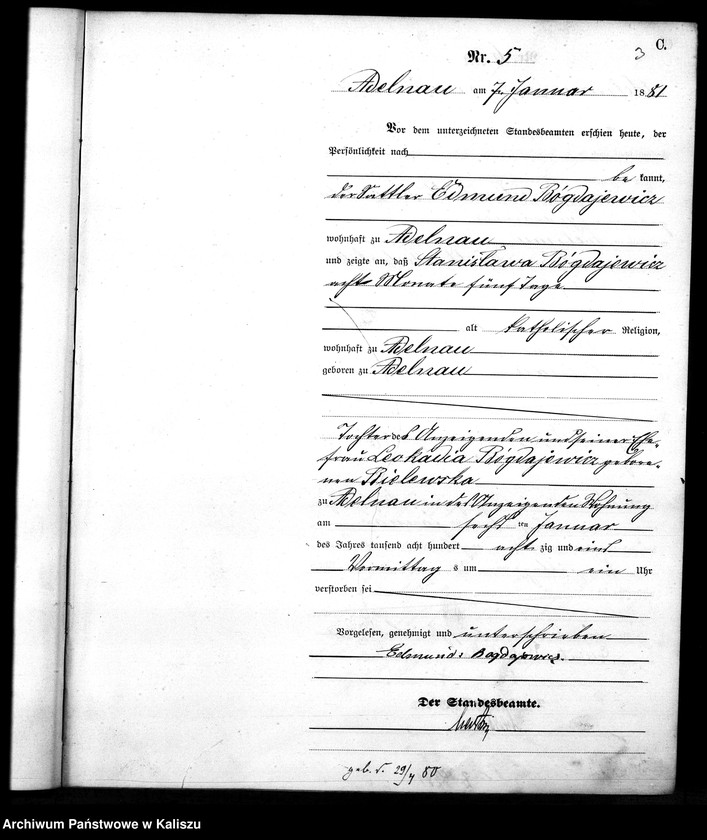 C.
3
Nr. 5
Adelnau am 7. Januar 1881
Vor dem unterzeichneten Standesbeamten erschien heute, der
Persönlichkeit nach
be kannt,
der Sattler Edmund Bógdajewicz
wohnhaft zu Adelnau
und zeigte an, daß Stanislawa Bógdajewicz
acht Monate fünf Tage
alt katholischer Religion,
wohnhaft zu Adelnau
geboren zu Adelnau
Tochter des Anzeigenden und seiner Ehe-
frau Leokadia Bógdajewicz gebore-
nen Bielewska
zu Adelnau in des Anzeigenden Wohnung
am sechs ten Januar
des Jahres tausend acht hundert acht zig und eins
Vormittag s um ein Uhr
verstorben sei
Vorgelesen, genehmigt und unterschrieben
Edmund Bogdajewicz
Der Standesbeamte.
geb. d. 29/4 80
Archiwum Państwowe w Kaliszu